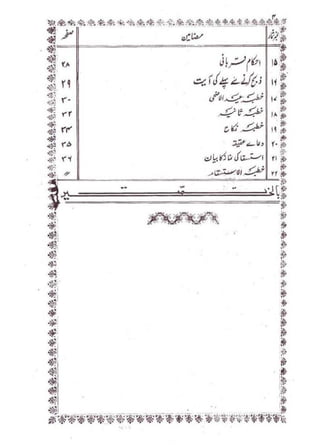 ۳
نمبر شمار مضامین صفحہ
۱۵ احکام قربانی ۲۸
۱۶ ذبح کرنے سے پہلے کی آیت ۲۹
۱۷ خطبہ عید الاضحی ۳۰
۱۸ خطبہ ثانیہ ۳۲
۱۹ خطبہ نکاح ۳۴
۲۰ دعائے عقیقہ ۳۵
۲۱ استسقا کی نماز کا بیان ۳۶
۲۲ خطبۃ الاستسقاء ״
تمت بالخیر